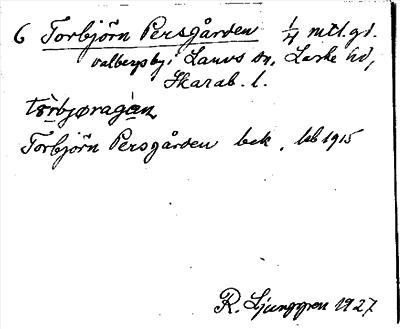 6 Torbjörn Persgården 1/4 mtl. gd.
valbergsby i Lauvs sn, Laske hd,
Skarab. l.
törbjøragán
Torbjörn Persgården bek. kb 1915
R. Ljunggren 1927